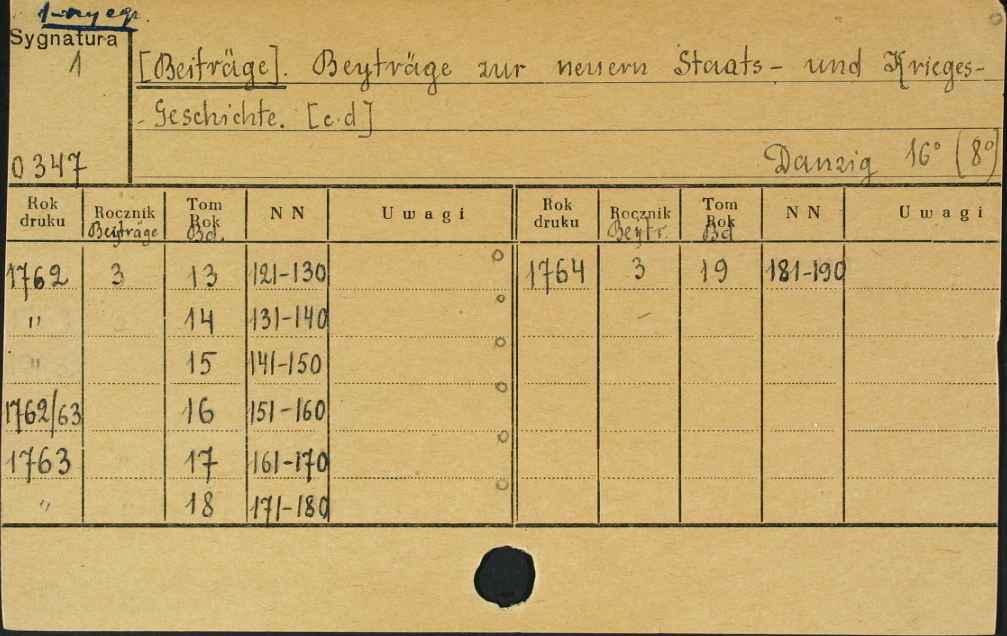 1-szy egz.
Sygnatura
1
[Beiträge]. Beyträge zur neuern Staats- und Krieges-
-Geschichte. [c.d]
0347
Danzig 16° (8°)
Rok druku Rocznik Beiträge Tom Rok Bd. N N Uwagi Rok druku Rocznik Beytr. Tom Rok Bd N N Uwagi
1762 3 13 121-130 1764 3 19 181-190
" 14 131-140
" 15 141-150
1762/63 16 151-160
1763 17 161-170
" 18 171-180